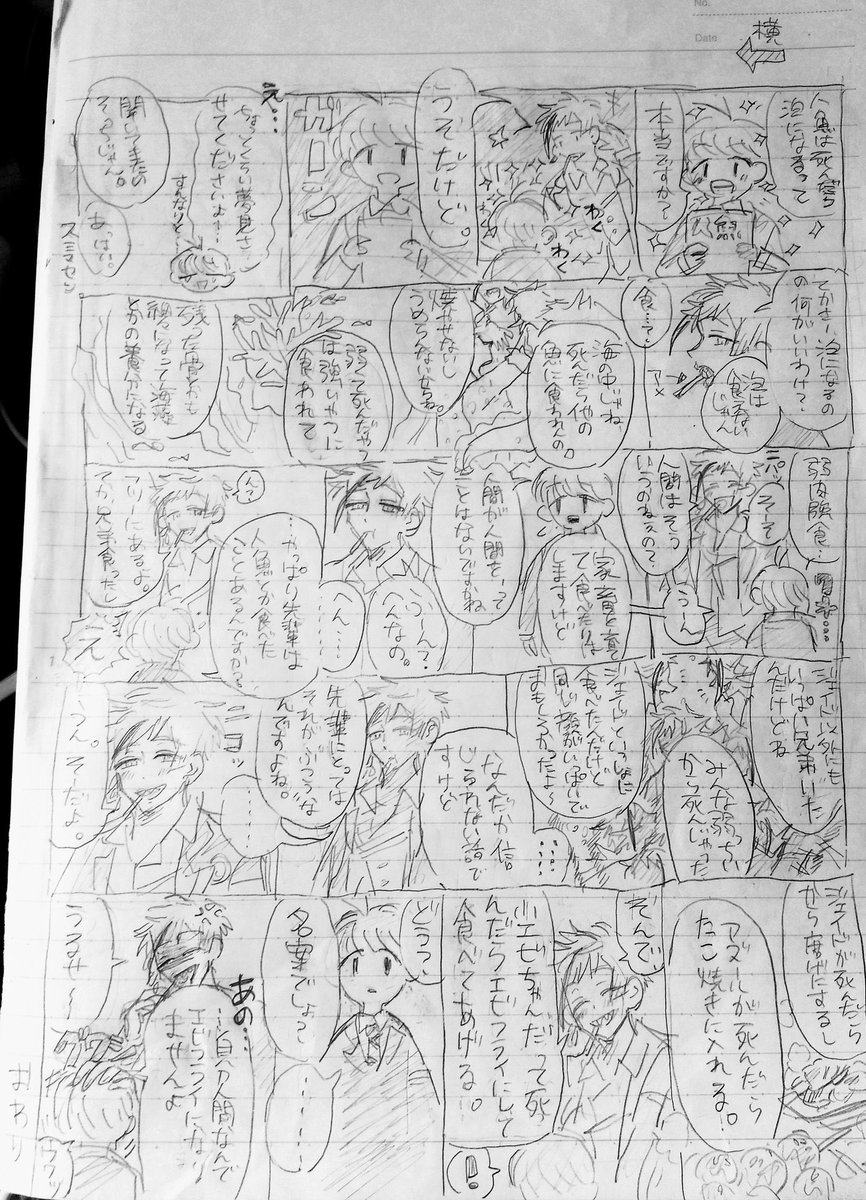 No.
Date
横
人魚は死んだら
泡になるって
本当ですか?
人魚
わく
わく
うそだけど。
ちょっとくらい夢見さ
せてくださいよぅ…
え…
聞いてきたの
そっちじゃん。
あっはい。
スミマセン
てかさー泡になるの
の何がいいわけ?
泡は
食えない
じゃん
アメ
食…て?
海の中じゃね
死んだら他の
魚に食われんの。
焼やせないし
うめらんないからね。
弱って死んだやつ
は強いやつに
食われて
残った骨とかも
とかの養分になる。
弱肉強食…
そーそ
人間はそう
いうのねぇの?
うーん
家畜を育
て食べたりは
しますけど
人間が人間を…って
ことはないですかね
ふーん?
へんなの。
へん……
…やっぱり先輩は
人魚とか食べた
ことあるんですか?
んー?
フツーにあるよ。
てか兄弟食ったし
え
ジェイド以外にも
いっぱい兄弟いた
んだけどね
みんな弱っちい
から死んじゃった
ジェイドといっしょに
食べたんだけど
同じ稚魚がいっぱいで
おもしろかったよ〜
なんだか信
じられない話で
すけど
先輩にとっては
それがふつうな
んですよね。
ニコッ
うん。そだよ。
ジェイドが死んだら
から揚げにするし
アズールが死んだら
たこ焼きに入れる!
そんで、
小エビちゃんだって死
んだらエビフライにして
食べてあげる!
どうっ、
名案でしょ?
あの…
…自分人間なんで
エビフライになり
ませんよ
うるせ〜
おわり